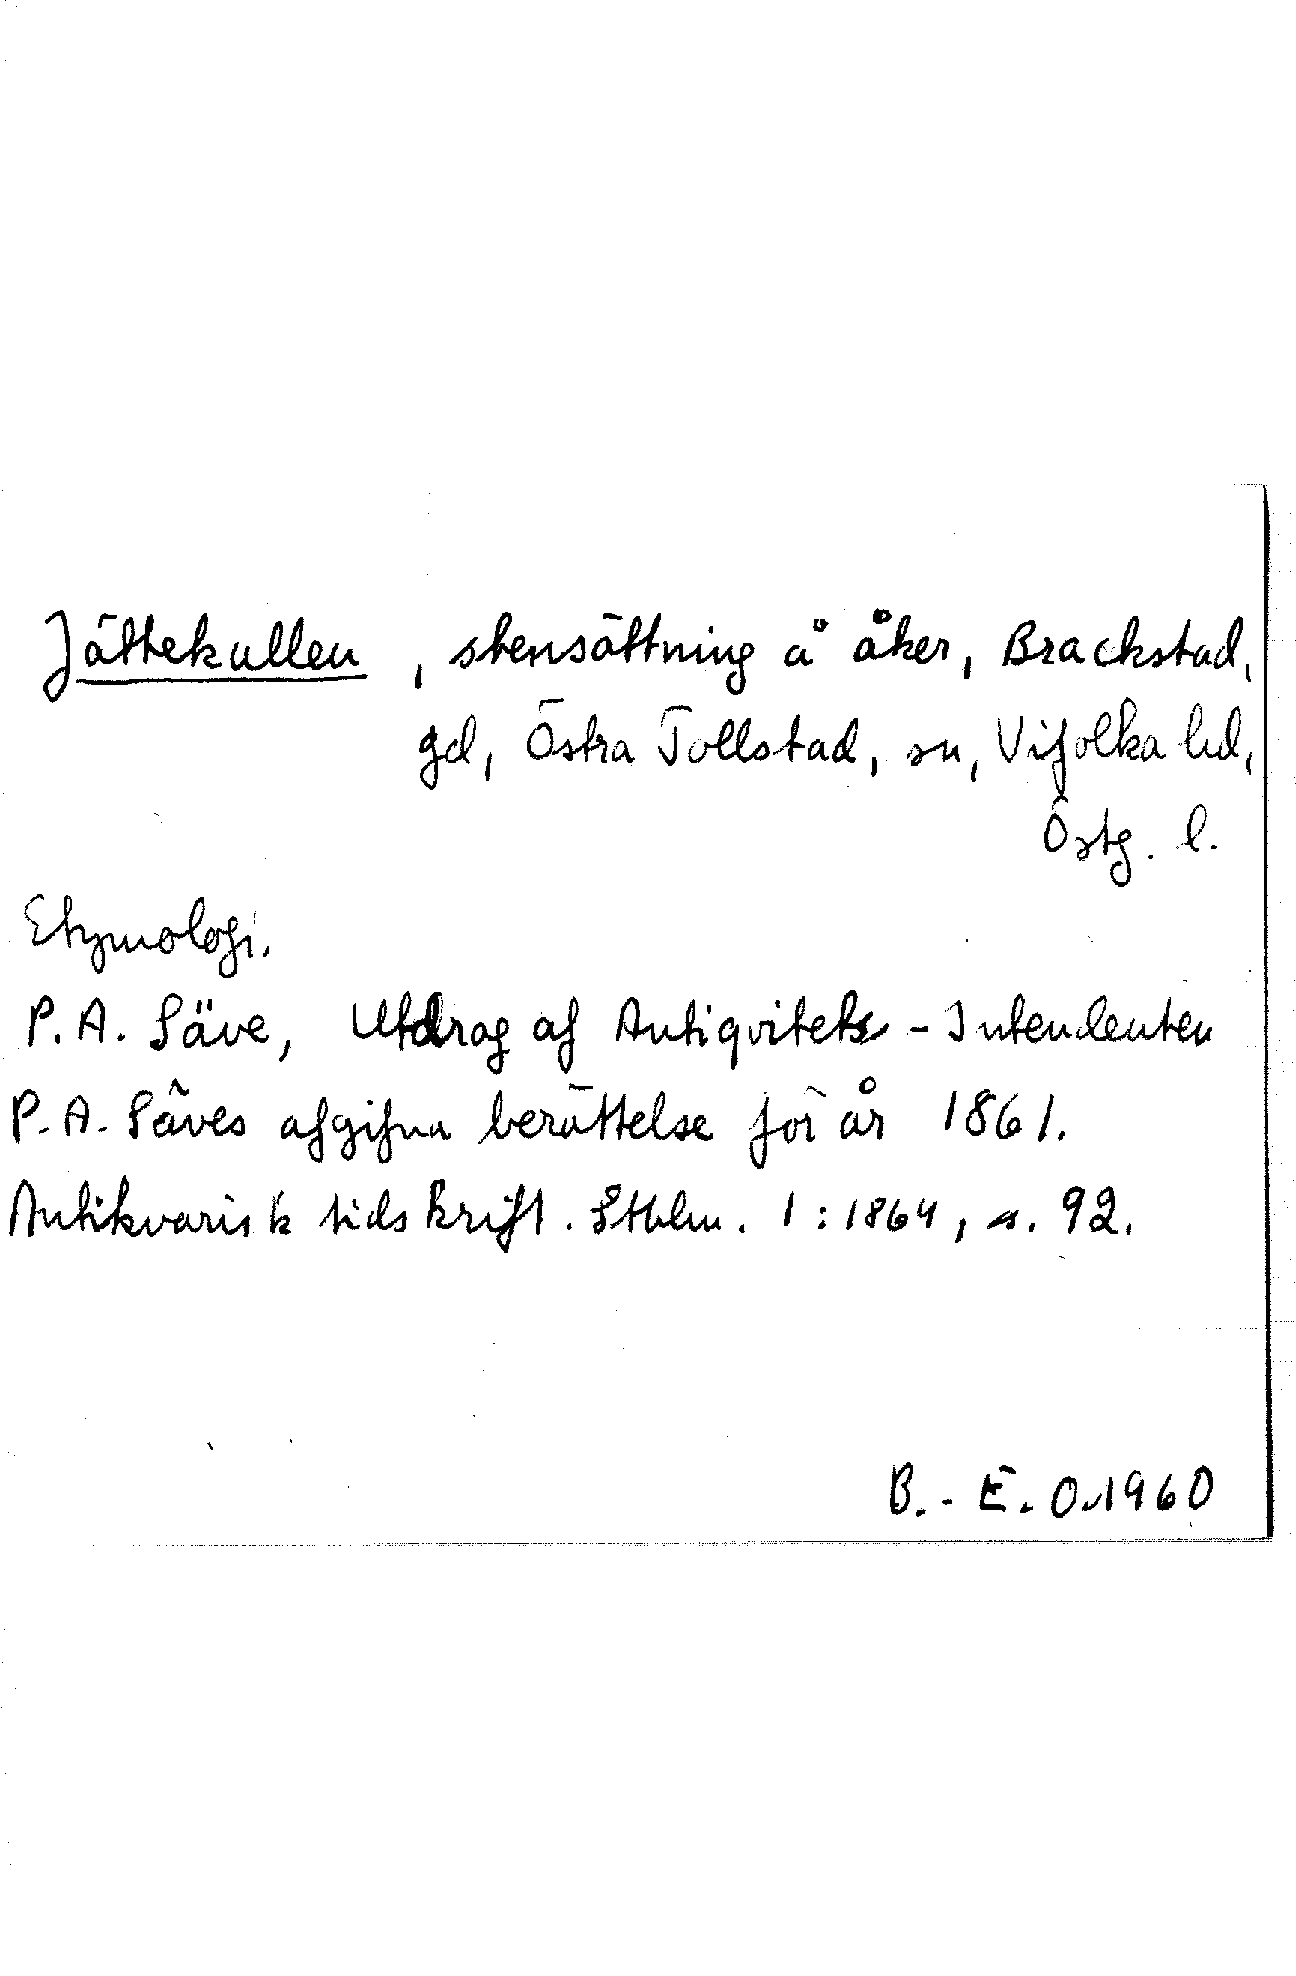 Jättekullen, stensättning å åker, Brackstad,
gd, Östra Tollstad, sn, Vifolka hd,
Östg. l.
Etymologi.
P.A. Säve, Utdrag af Antiqvitets-Intendenten
P.A. Säves afgifna berättelse för år 1861.
Antikvarisk tidskrift. Sthlm. 1:1864, s. 92.
B.-E. O. 1960